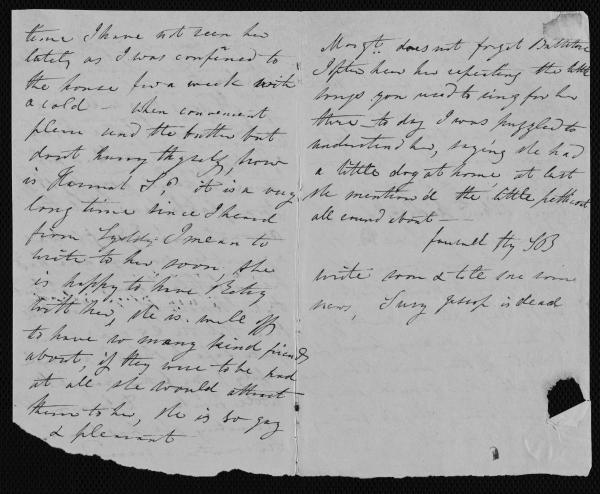 time I have not seen her
lately as I was confined to
the house for a week with
a cold – when convenient
please send the butter but
don't hurry thyself, how
is Hannah S? it is a very
long time since I heard
from I mean to
write to her soon, she
is happy to have Betsy
with her, she is well off
to have so many kind friends
about, if they were to be had
at all she would attract
them to her, she is so gay
& pleasant
Margt. does not forget
I often hear her repeating the little
songs you used to sing for her
there to day I was puzzled to
understand her, saying she had
a little dog at home at last
she mention'd the little petticoat
all round about —
farewell thy SB
write soon & tell me some
news, Jesup is dead